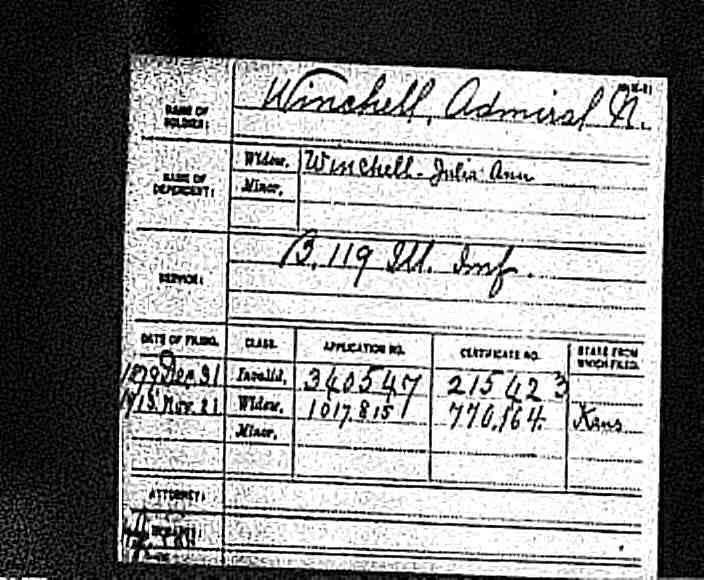 Winchell, Admiral N.
NAME OF
SOLDIER:
Widow, Winchell - Julia Ann
NAME OF
DEPENDENT:
Minor,
B. 119 Ill. Inf.
SERVICE:
DATE OF FILING. CLASS. APPLICATION NO. CERTIFICATE NO. STATE FROM
WHICH FILED.
31 Invalid, 340547 215423
Nov. 21 Widow, 1017.815 770.164 Kans
Minor,
ATTORNEY: